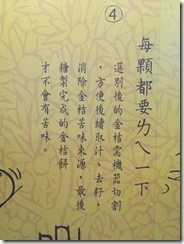 ④
每顆都要ㄌㄟˊ一下
選別後的金桔需機器切割
，方便後續取汁、去籽，
消除金桔苦味來源，最後
糖製完成的金桔餅
才不會有苦味。